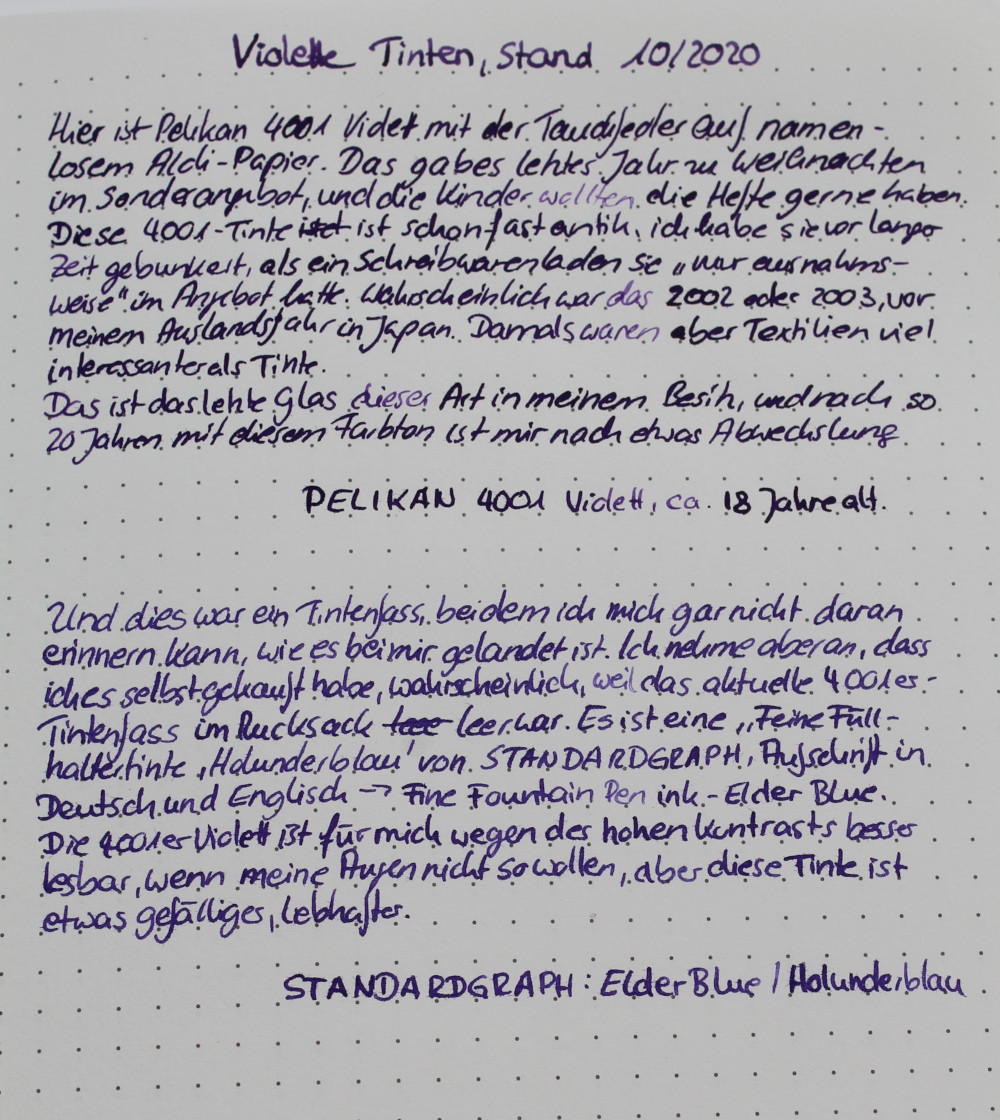 Violette Tinten, Stand 10/2020
Hier ist Pelikan 4001 Violett mit der Tauchfeder auf namen-
losem Aldi-Papier. Das gab es letztes Jahr zu Weihnachten
im Sonderangebot, und die Kinder wollten die Hefte gerne haben.
Diese 4001-Tinte ist ist schon fast antik, ich habe sie vor langer
Zeit gebunkert, als ein Schreibwarenladen sie „nur ausnahms-
weise" im Angebot hatte. Wahrscheinlich war das 2002 oder 2003, vor
meinem Auslandsjahr in Japan. Damals waren aber Textilien viel
interessanter als Tinte.
Das ist das letzte Glas dieser Art in meinem Besitz, und nach so
20 Jahren mit diesem Farbton ist mir nach etwas Abwechslung
PELIKAN 4001 Violett, ca. 18 Jahre alt.
Und dies war ein Tintenfass, bei dem ich mich gar nicht daran
erinnern kann, wie es bei mir gelandet ist. Ich nehme aber an, dass
ich es selbst gekauft habe, wahrscheinlich, weil das aktuelle 4001er-
Tintenfass im Rucksack leer war. Es ist eine „Feine Füll-
haltertinte ‚Holunderblau' von STANDARDGRAPH, Aufschrift in
Deutsch und Englisch → Fine Fountain Pen ink - Elder Blue.
Die 4001er Violett ist für mich wegen des hohen Kontrasts besser
lesbar, wenn meine Augen nicht so wollen, aber diese Tinte ist
etwas gefälliges, lebhafter.
STANDARDGRAPH: Elder Blue / Holunderblau